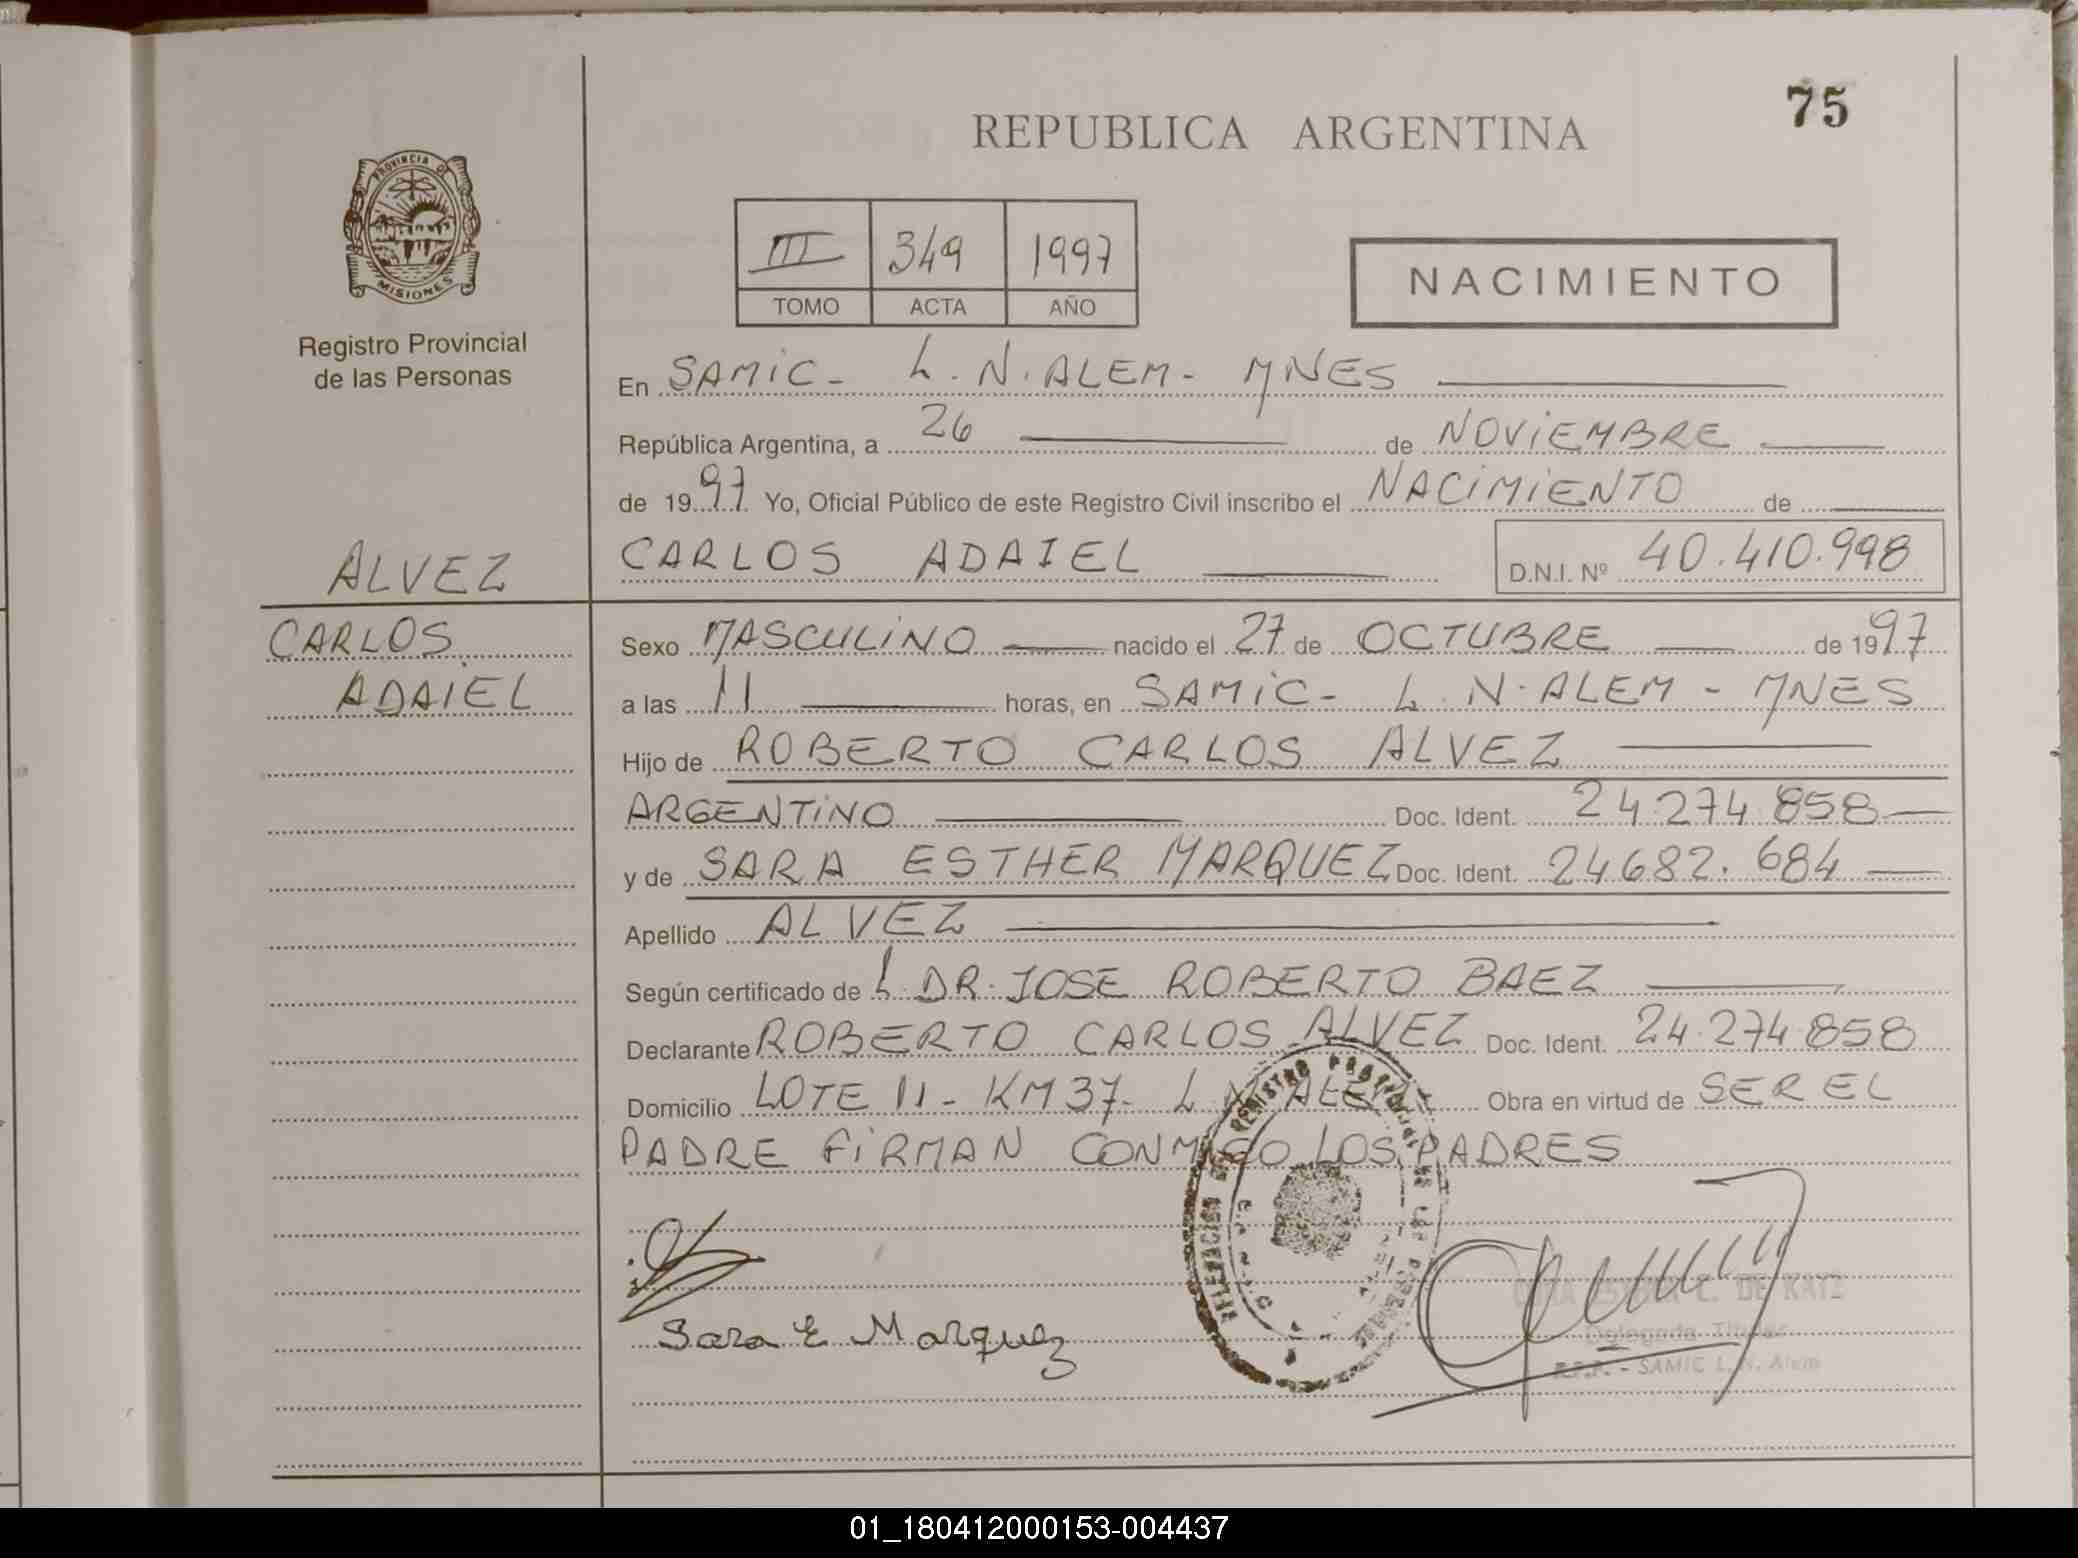 75
REPUBLICA ARGENTINA
PROVINCIA DE
MISIONES
Registro Provincial
de las Personas
III 349 1997
TOMO ACTA AÑO
NACIMIENTO
En SAMIC - L. N. ALEM - MNES
República Argentina, a 26 de NOVIEMBRE
de 1997 Yo, Oficial Público de este Registro Civil inscribo el NACIMIENTO de
CARLOS ADAIEL D.N.I. Nº 40.410.998
ALVEZ
CARLOS
ADAIEL
Sexo MASCULINO nacido el 27 de OCTUBRE de 1997
a las 11 horas, en SAMIC - L. N. ALEM - MNES
Hijo de ROBERTO CARLOS ALVEZ
ARGENTINO Doc. Ident. 24.274.858
y de SARA ESTHER MARQUEZ Doc. Ident. 24.682.684
Apellido ALVEZ
Según certificado de L. DR. JOSE ROBERTO BAEZ
Declarante ROBERTO CARLOS ALVEZ Doc. Ident. 24.274.858
Domicilio LOTE 11 - KM 37 - L. N. ALEM Obra en virtud de SER EL
PADRE FIRMAN CONMIGO LOS PADRES
Sara E Marquez
C. DE KATZ
Delegada Titular
R.P.P. - SAMIC L.N. Alem
01_180412000153-004437